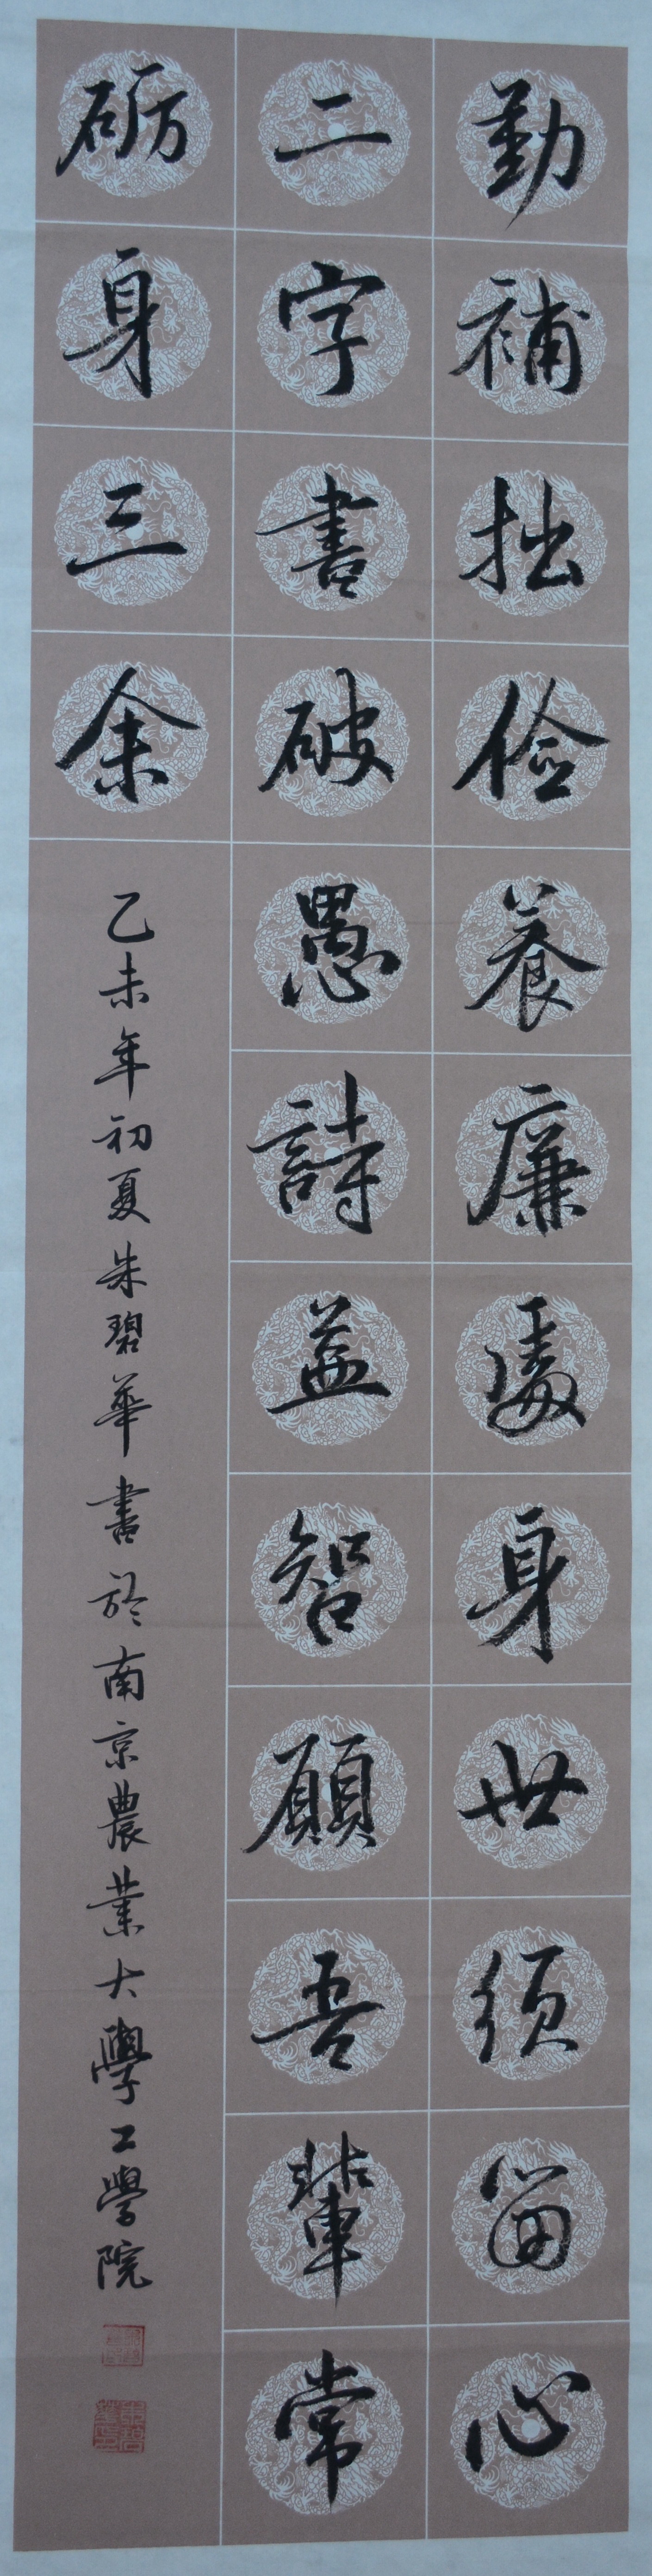 勤補拙儉養廉處身世須留心
二字書破愚詩益智顧吾輩常
砺身三余
乙未年初夏朱碧華書於南京農業大學工學院